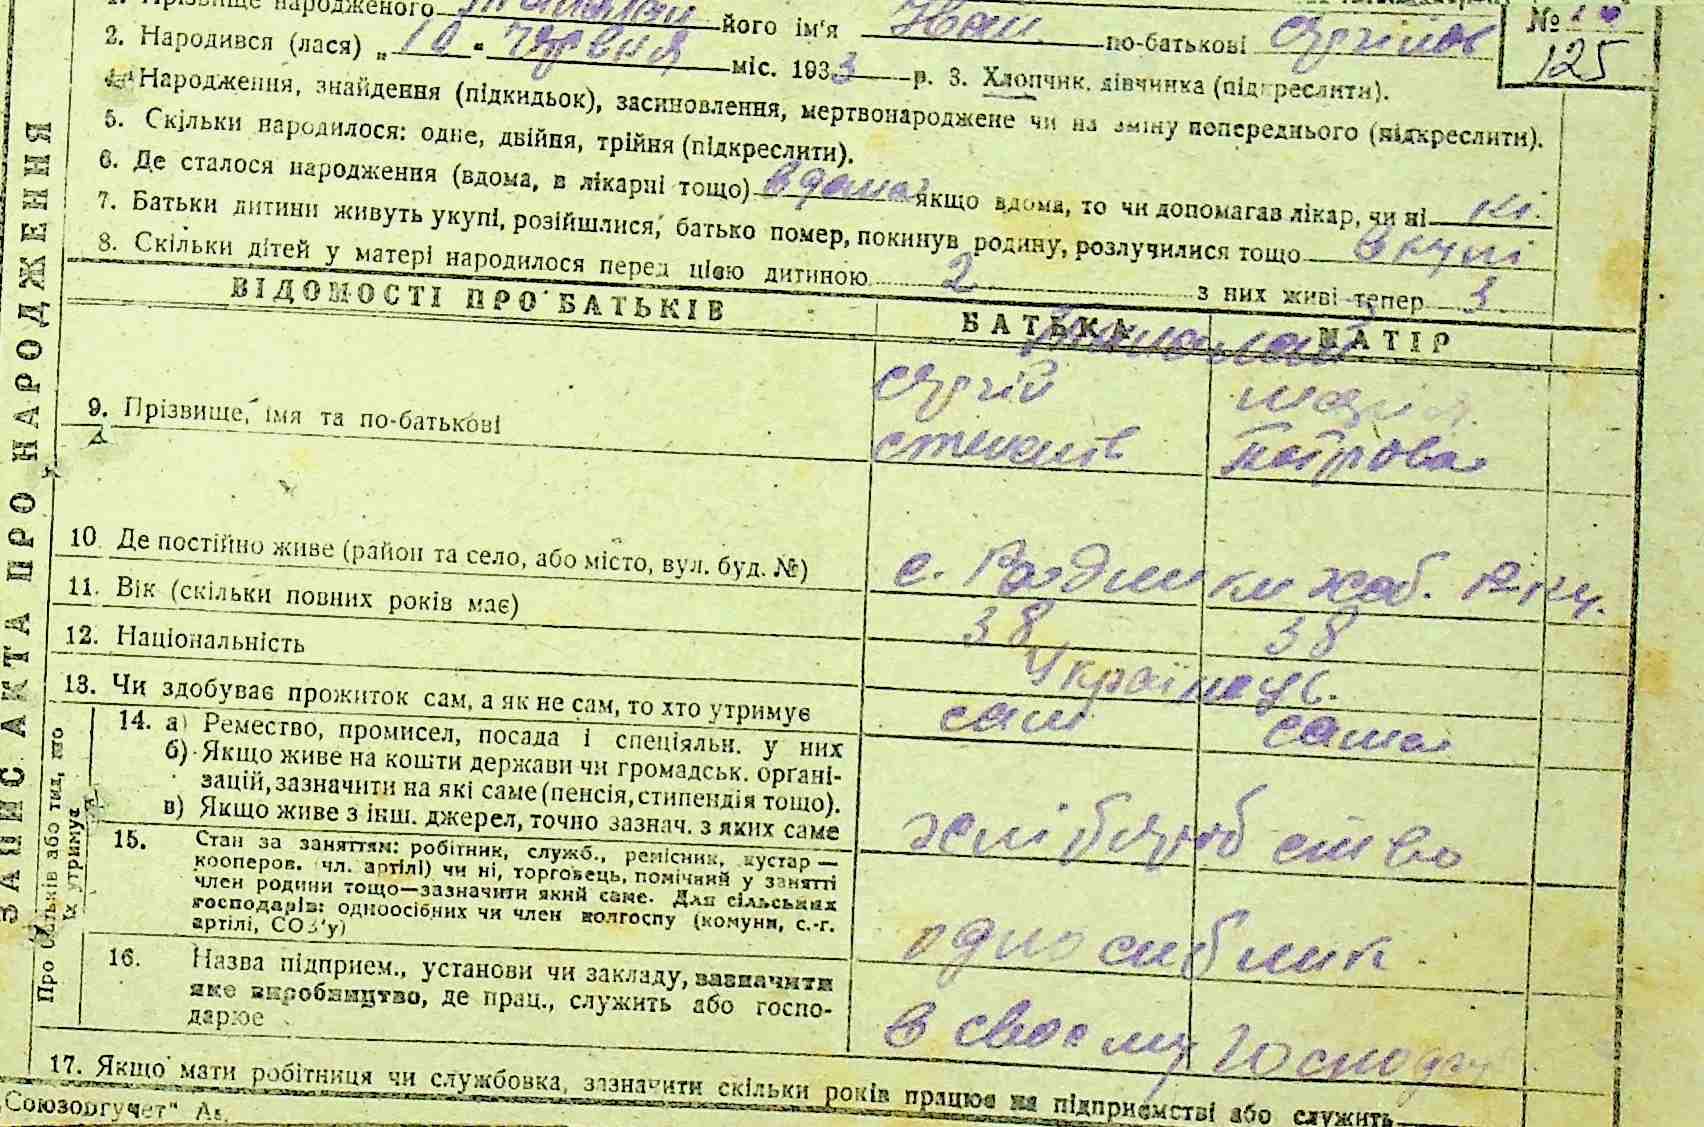 1. Прізвище народженого його ім'я Іван по-батькові Сергійов
№
125
2. Народився (лася) „ 10 " червня міс. 1933 р. 3. Хлопчик, дівчинка (підкреслити).
4. Народження, знайдення (підкидьок), засиновлення, мертвонароджене чи на зміну попереднього (підкреслити).
5. Скільки народилося: одне, двійня, трійня (підкреслити).
6. Де сталося народження (вдома, в лікарні тощо) вдома якщо вдома, то чи допомагав лікар, чи ні ні.
7. Батьки дитини живуть укупі, розійшлися, батько помер, покинув родину, розлучилися тощо вкупі
8. Скільки дітей у матері народилося перед цією дитиною 2 з них живі тепер 3
ВІДОМОСТІ ПРО БАТЬКІВ БАТЬКА МАТІР
9. Прізвище, імя та по-батькові
Сергій Марія
Степанів Петрова
10. Де постійно живе (район та село, або місто, вул. буд. №) с. жаб.
11. Вік (скільки повних років має) 38 38
12. Національність Українець.
13. Чи здобуває прожиток сам, а як не сам, то хто утримує сам сама
14. а) Ремество, промисел, посада і спеціяльн. у них
б) Якщо живе на кошти держави чи громадськ. органі-
зацій, зазначити на які саме (пенсія, стипендія тощо).
в) Якщо живе з інш. джерел, точно зазнач. з яких саме
хліборобство
15. Стан за заняттям: робітник, служб., ремісник, кустар —
кооперов. чл. артілі) чи ні, торговець, помічний у занятті
член родини тощо—зазначити який саме. Для сільських
господарів: одноосібних чи член колгоспу (комуни, с.-г.
артілі, СОЗ'у)
односибник
16. Назва підприєм., установи чи закладу, зазначити
яке виробництво, де прац., служить або госпо-
дарює
в своєму
17. Якщо мати робітниця чи службовка, зазначити скільки років працює на підприємстві або служить
Союзоргучет"
ЗАПИС АКТА ПРО НАРОДЖЕННЯ
Про батьків або тид, що
їх утримує